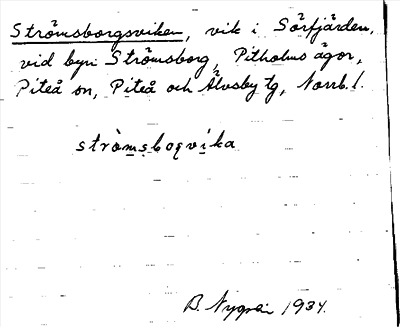 Strömsborgsviken, vik i Sörfjärden,
vid byn Strömsborg, Pitholms ägor,
Piteå sn, Piteå och Älvsby tg, Norrb. l.
strömsboqvika
B. Nygren 1934.